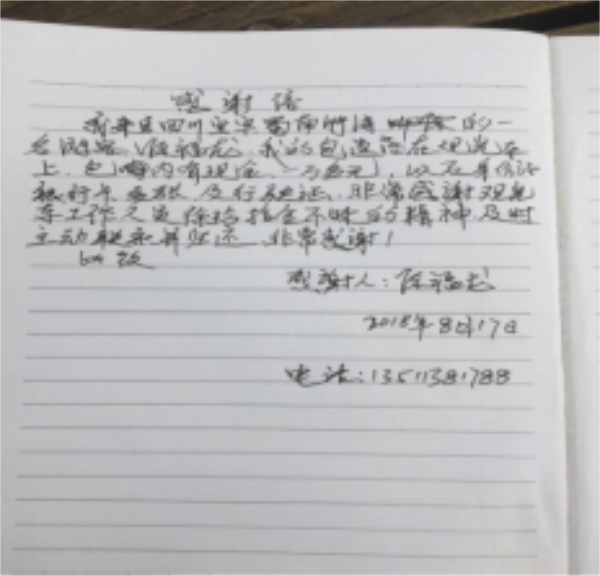 感谢信
我来自四川宜宾蜀南竹海 的一
名游客,(陈福龙)我的包遗落在观光车
上,包 内有现金 一万多元,以及身份证
银行卡 及行驶证,非常感谢观光
车工作人员 拾金不昧的精神,及时
主动联系并归还,非常感谢!
此致
感谢人:陈福龙
2018年8月17日
电话:13511381788